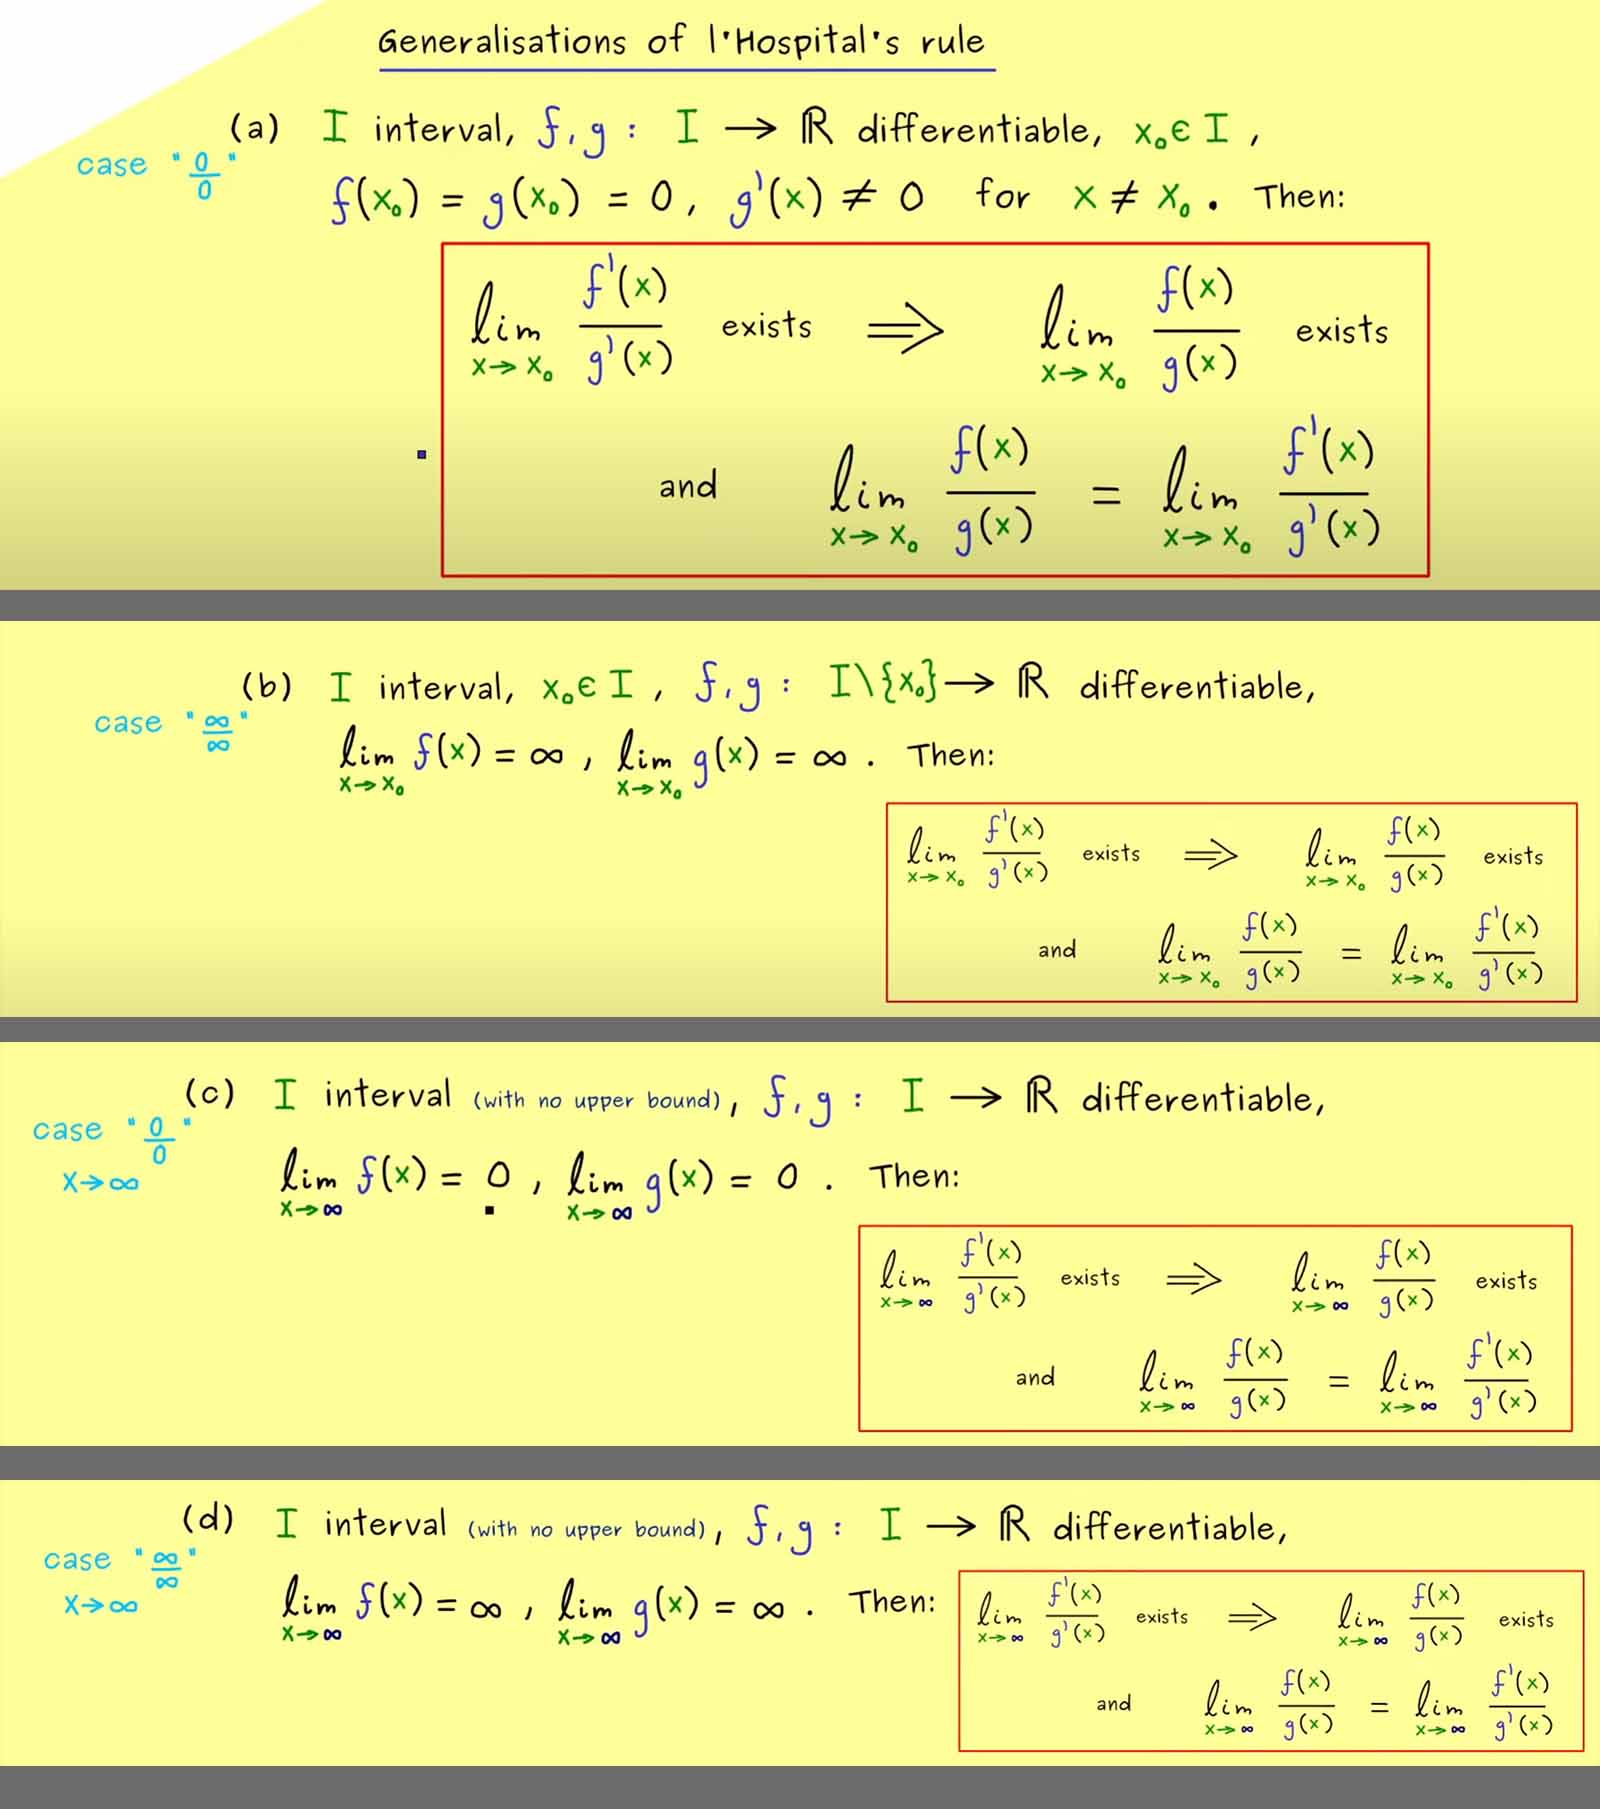 Generalisations of l'Hospital's rule
(a) I interval, f, g : I → ℝ differentiable, x₀ ∈ I ,
case "0/0"
f(x₀) = g(x₀) = 0, g'(x) ≠ 0 for x ≠ x₀ . Then:
lim_{x→x₀} f'(x)/g'(x) exists ⟹ lim_{x→x₀} f(x)/g(x) exists
and lim_{x→x₀} f(x)/g(x) = lim_{x→x₀} f'(x)/g'(x)
(b) I interval, x₀ ∈ I , f, g : I\{x₀} → ℝ differentiable,
case "∞/∞"
lim_{x→x₀} f(x) = ∞ , lim_{x→x₀} g(x) = ∞ . Then:
lim_{x→x₀} f'(x)/g'(x) exists ⟹ lim_{x→x₀} f(x)/g(x) exists
and lim_{x→x₀} f(x)/g(x) = lim_{x→x₀} f'(x)/g'(x)
(c) I interval (with no upper bound), f, g : I → ℝ differentiable,
case "0/0"
x→∞
lim_{x→∞} f(x) = 0 , lim_{x→∞} g(x) = 0 . Then:
lim_{x→∞} f'(x)/g'(x) exists ⟹ lim_{x→∞} f(x)/g(x) exists
and lim_{x→∞} f(x)/g(x) = lim_{x→∞} f'(x)/g'(x)
(d) I interval (with no upper bound), f, g : I → ℝ differentiable,
case "∞/∞"
x→∞
lim_{x→∞} f(x) = ∞ , lim_{x→∞} g(x) = ∞ . Then:
lim_{x→∞} f'(x)/g'(x) exists ⟹ lim_{x→∞} f(x)/g(x) exists
and lim_{x→∞} f(x)/g(x) = lim_{x→∞} f'(x)/g'(x)